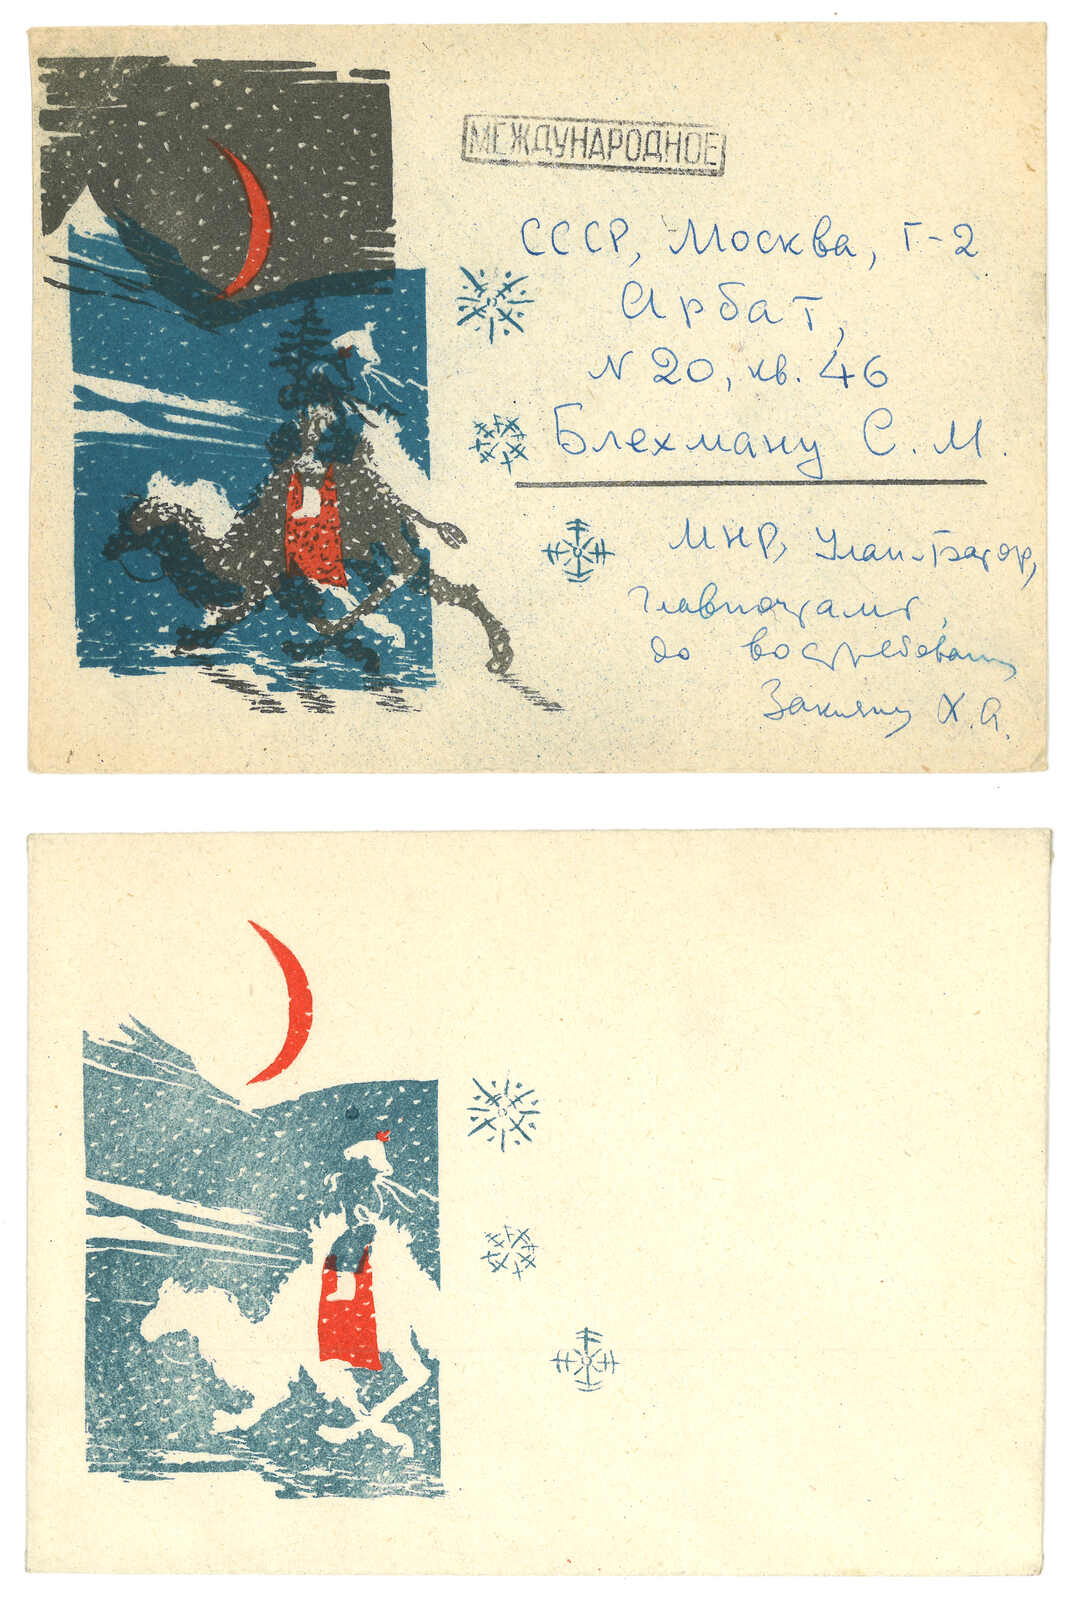 МЕЖДУНАРОДНОЕ
СССР, Москва, Г-2
Арбат,
N 20, кв. 46
Блехману С. М.
МНР, Улан-Батор,
Главпочтамт,
до востребования
Х. А.